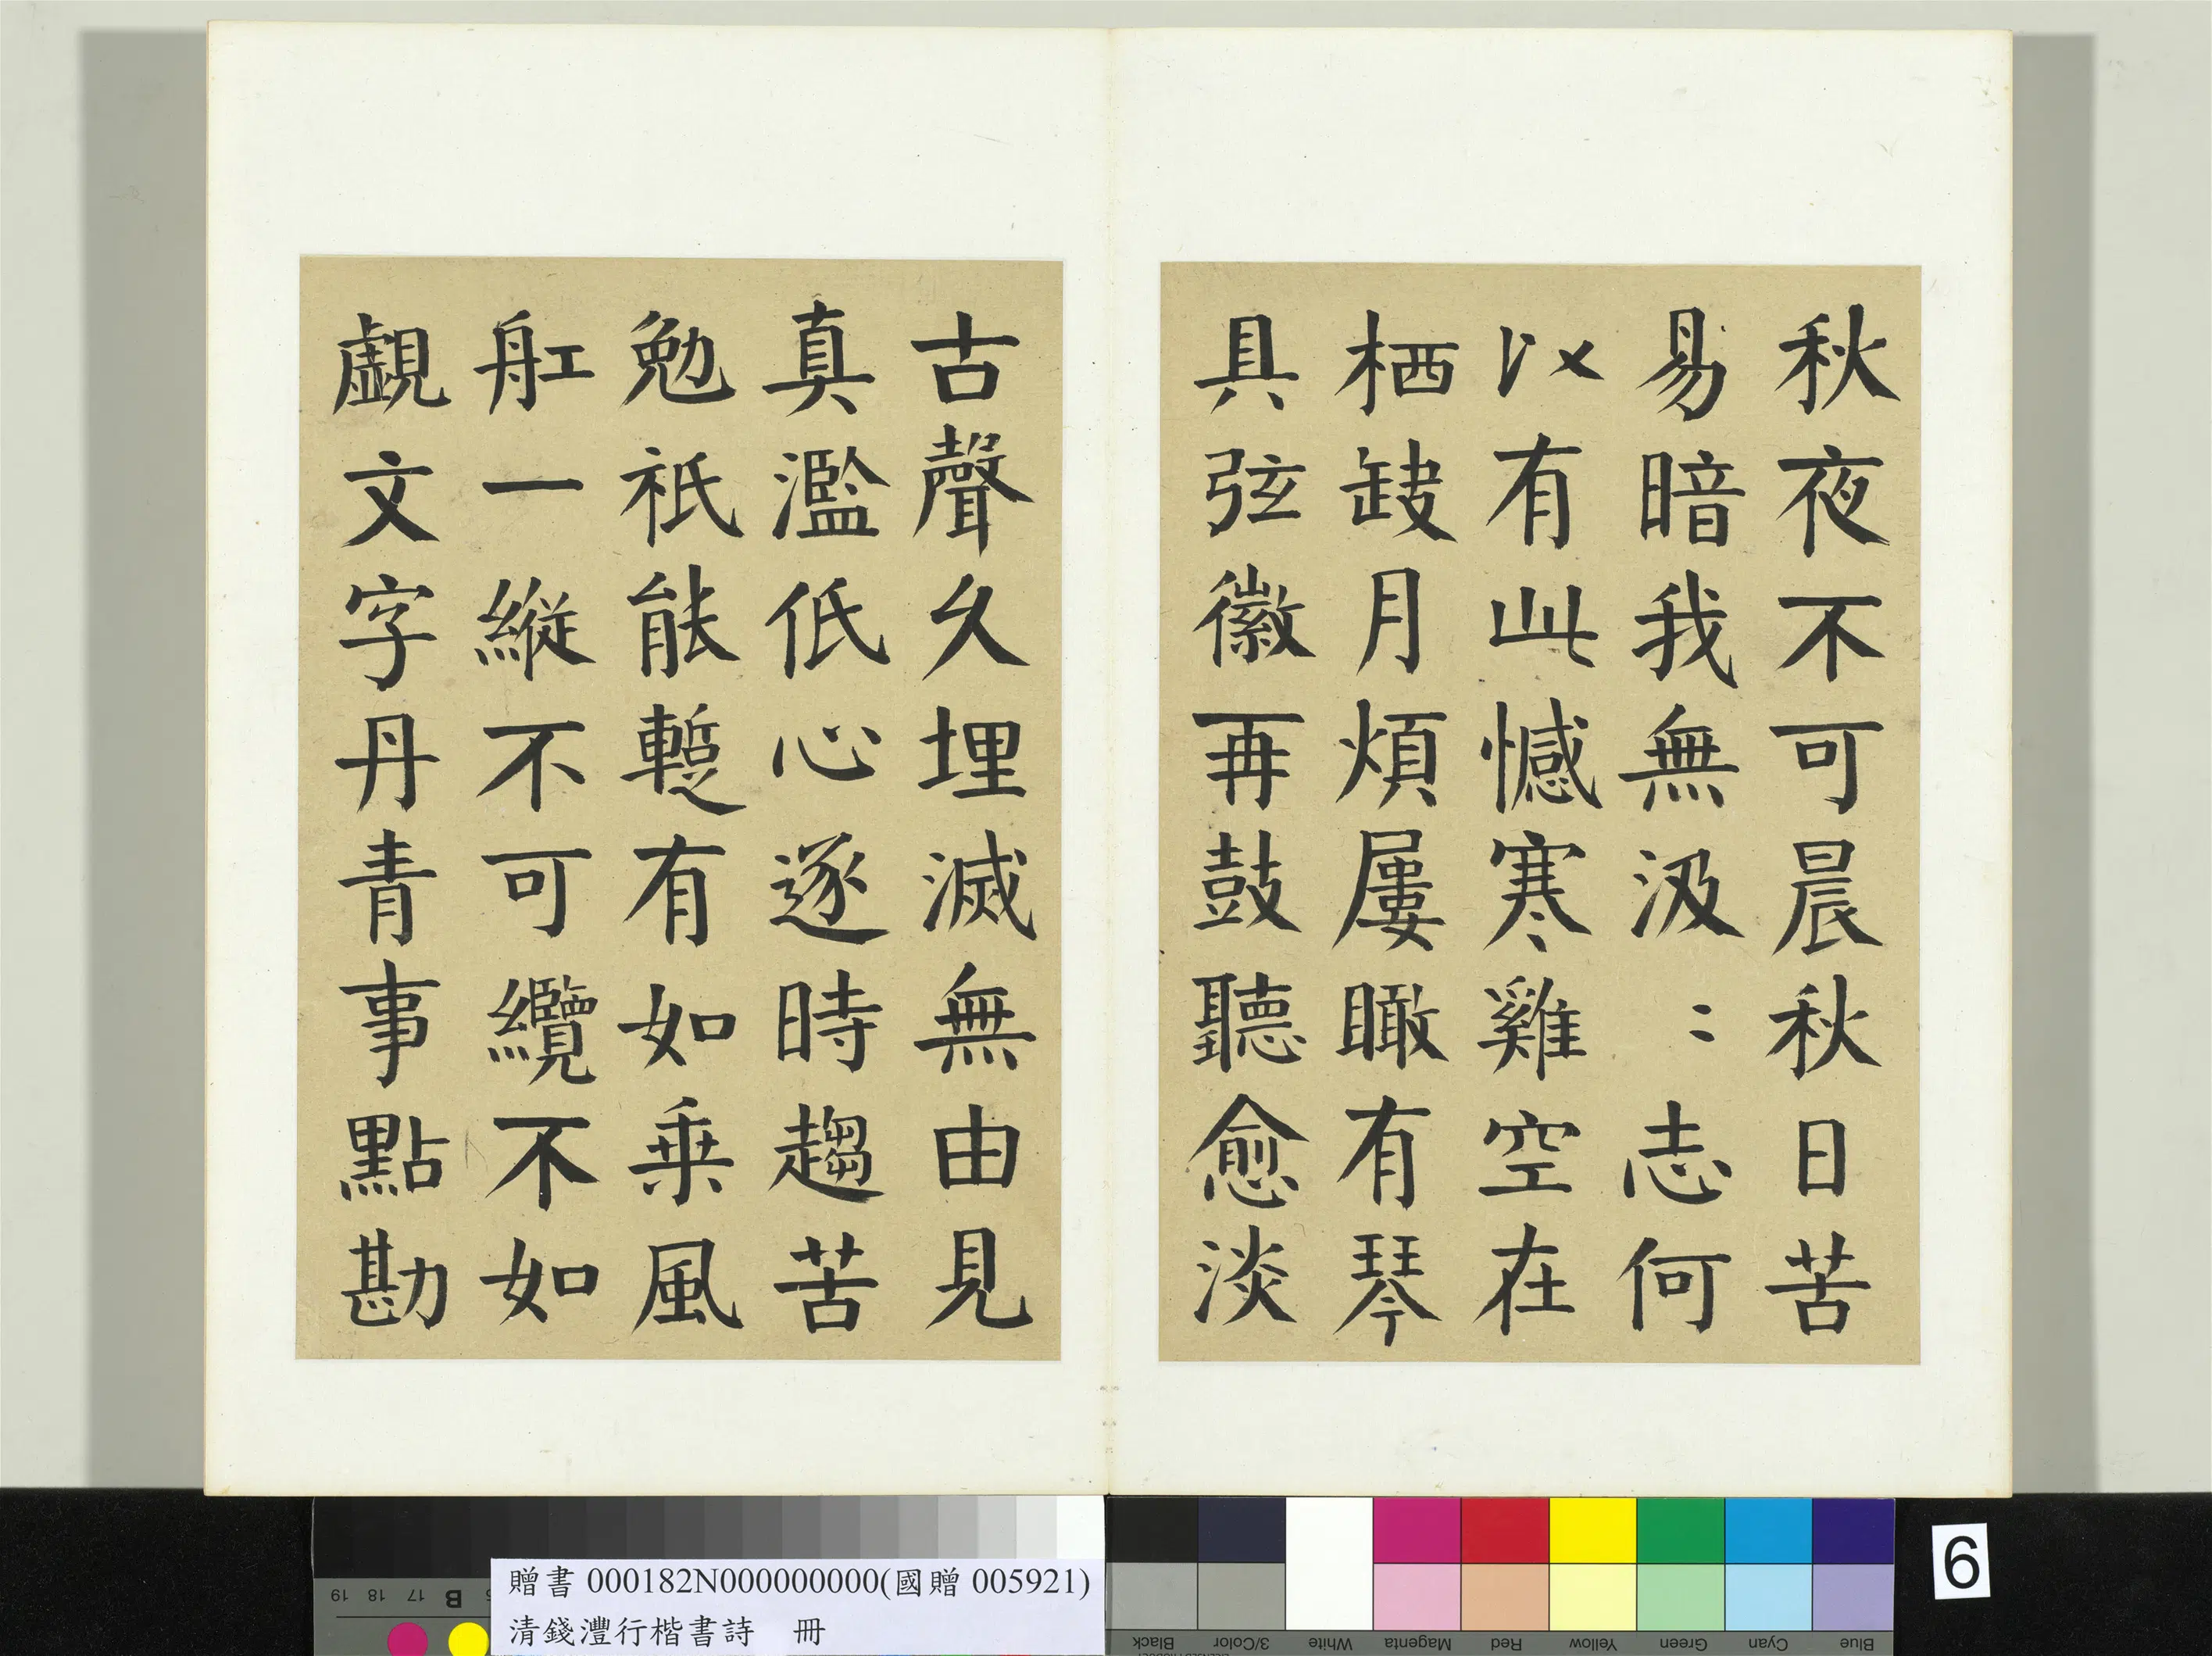 秋夜不可晨秋日苦
易暗我無汲〻志何
以有此憾寒雞空在
栖缺月煩屢瞰有琴
具弦徽再鼓聽愈淡
古聲久埋滅無由見
真濫低心逐時趨苦
勉祇能蹔有如乗風
舡一縱不可纜不如
覷文字丹青事點勘
贈書 000182N000000000(國贈 005921)
清錢灃行楷書詩　冊
6
19 18 17 B
Black 3/Color White Magenta Red Yellow Green Cyan Blue